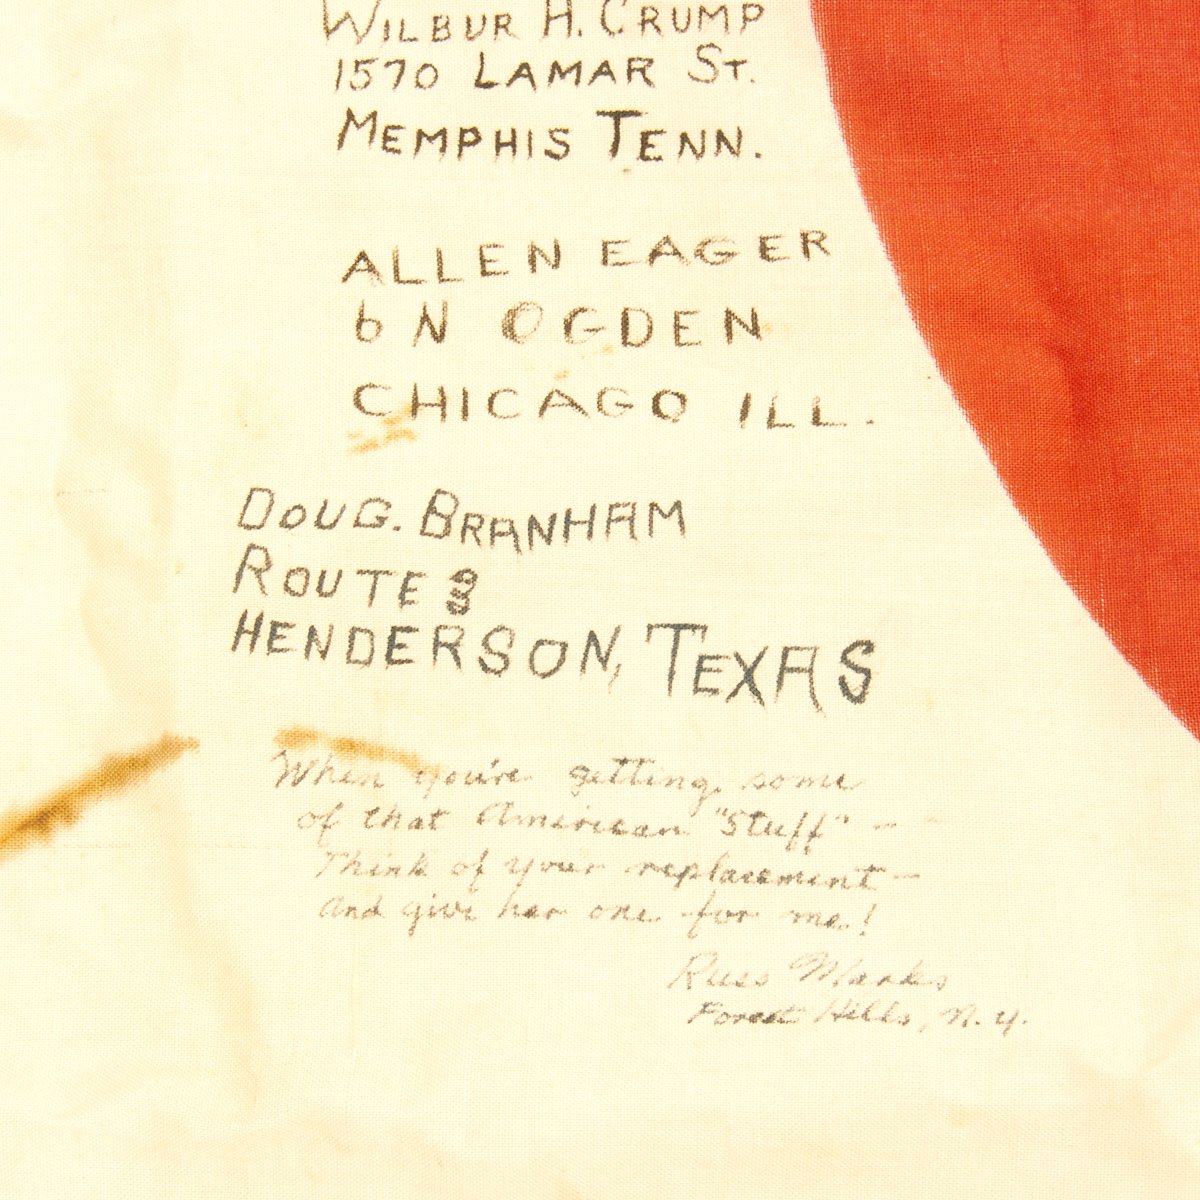 WILBUR H. CRUMP
1570 LAMAR ST.
MEMPHIS TENN.
ALLEN EAGER
6 N OGDEN
CHICAGO ILL.
DOUG. BRANHAM
ROUTE 3
HENDERSON, TEXAS
When you're getting some
of that American "Stuff" — –
Think of your replacement —
and give her one for me!
Russ Marks
Forest Hills, N.Y.